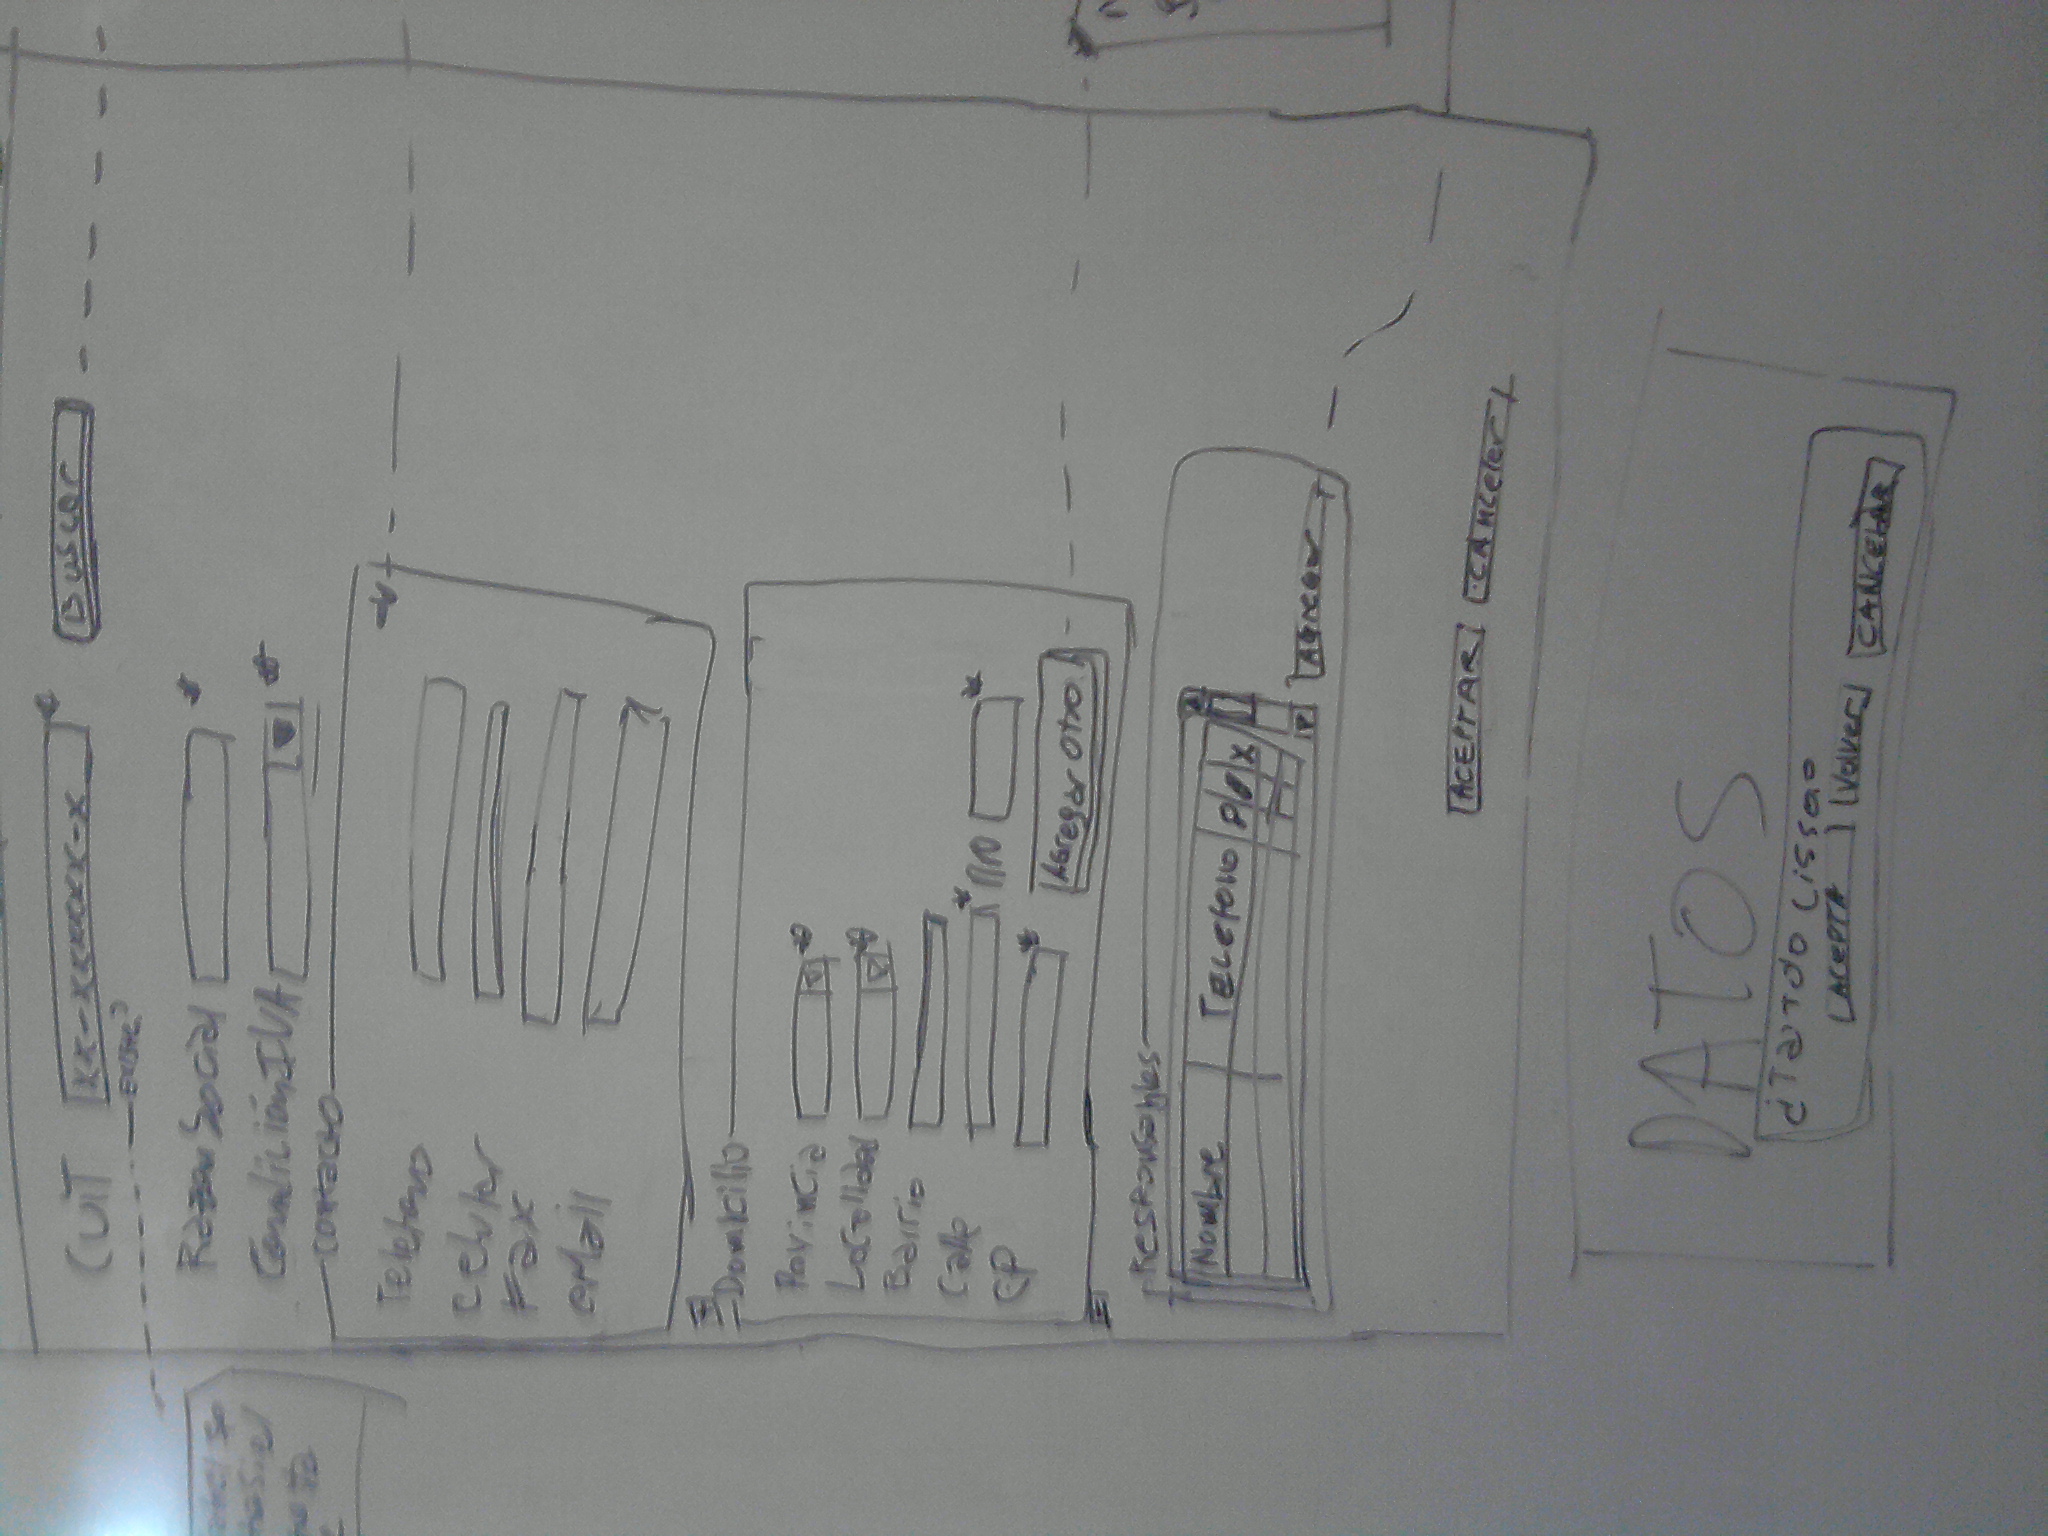 CUIT xx-xxxxxx-x * Buscar
existe?
Razon Social *
Condición IVA *
contacto
Telefono
celular
Fax
eMail
Domicilio
Provincia *
Localidad *
Barrio
Calle * nro *
CP *
Agregar otro
Responsables
Nombre Telefono X
Agregar
ACEPTAR Cancelar
DATOS
ACEPTA Volver CANCELAR